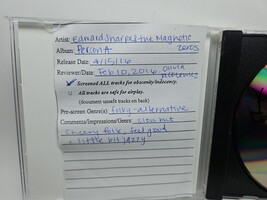 Artist: Edward Sharpe & the Magnetic
Zeros
Album: PersonA
Release Date: 4/15/16
Reviewer/Date: Feb 10, 2016 Olivia
Screened ALL tracks for obscenity/indecency.
All tracks are safe for airplay.
(document unsafe tracks on back)
Pre-screen Genre(s): folky-alternative
Comments/Impressions/Genre: slow but
cheery folk, feel good
a little bit jazzy